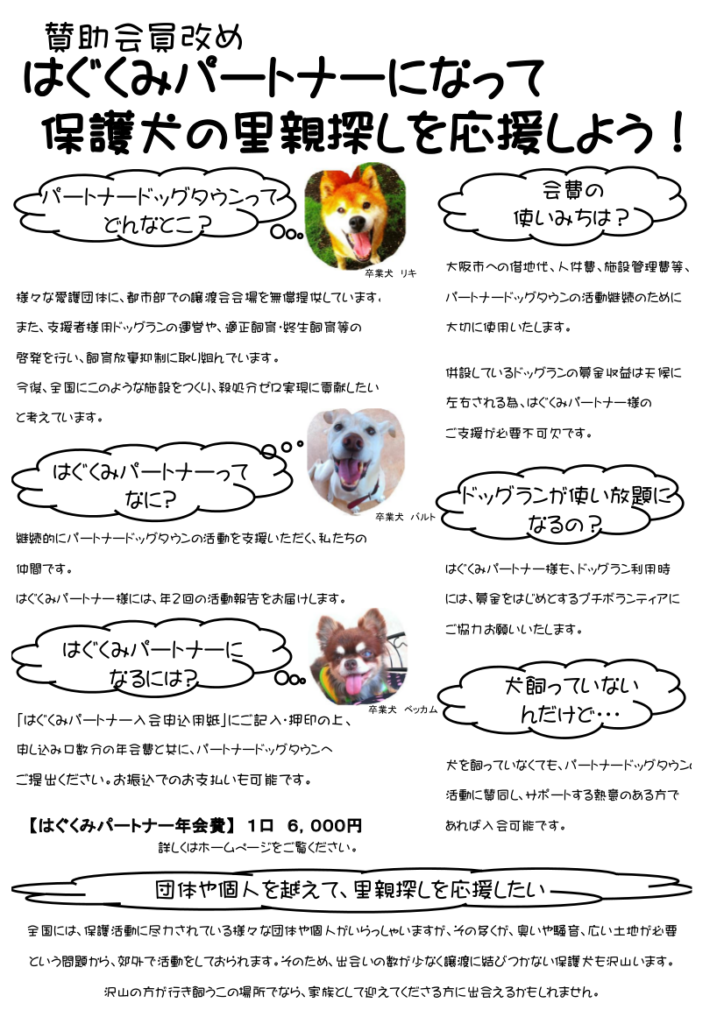 賛助会員改め
はぐくみパートナーになって
保護犬の里親探しを応援しよう！
パートナードッグタウンって
どんなとこ？
卒業犬　リキ
様々な愛護団体に、都市部での譲渡会会場を無償提供しています。
また、支援者様用ドッグランの運営や、適正飼育・終生飼育等の
啓発を行い、飼育放棄抑制に取り組んでいます。
今後、全国にこのような施設をつくり、殺処分ゼロ実現に貢献したい
と考えています。
はぐくみパートナーって
なに？
卒業犬　バルト
継続的にパートナードッグタウンの活動を支援いただく、私たちの
仲間です。
はぐくみパートナー様には、年２回の活動報告をお届けします。
はぐくみパートナーに
なるには？
卒業犬　ベッカム
「はぐくみパートナー入会申込用紙」にご記入・押印の上、
申し込み口数分の年会費と共に、パートナードッグタウンへ
ご提出ください。お振込でのお支払いも可能です。
【はぐくみパートナー年会費】　１口　６，０００円
詳しくはホームページをご覧ください。
会費の
使いみちは？
大阪市への借地代、人件費、施設管理費等、
パートナードッグタウンの活動継続のために
大切に使用いたします。
併設しているドッグランの募金収益は天候に
左右される為、はぐくみパートナー様の
ご支援が必要不可欠です。
ドッグランが使い放題に
なるの？
はぐくみパートナー様も、ドッグラン利用時
には、募金をはじめとするプチボランティアに
ご協力お願いいたします。
犬飼っていない
んだけど・・・
犬を飼っていなくても、パートナードッグタウンの
活動に賛同し、サポートする熱意のある方で
あれば入会可能です。
団体や個人を越えて、里親探しを応援したい
全国には、保護活動に尽力されている様々な団体や個人がいらっしゃいますが、その多くが、臭いや騒音、広い土地が必要
という問題から、郊外で活動をしておられます。そのため、出会いの数が少なく譲渡に結びつかない保護犬も沢山います。
沢山の方が行き飼うこの場所でなら、家族として迎えてくださる方に出会えるかもしれません。